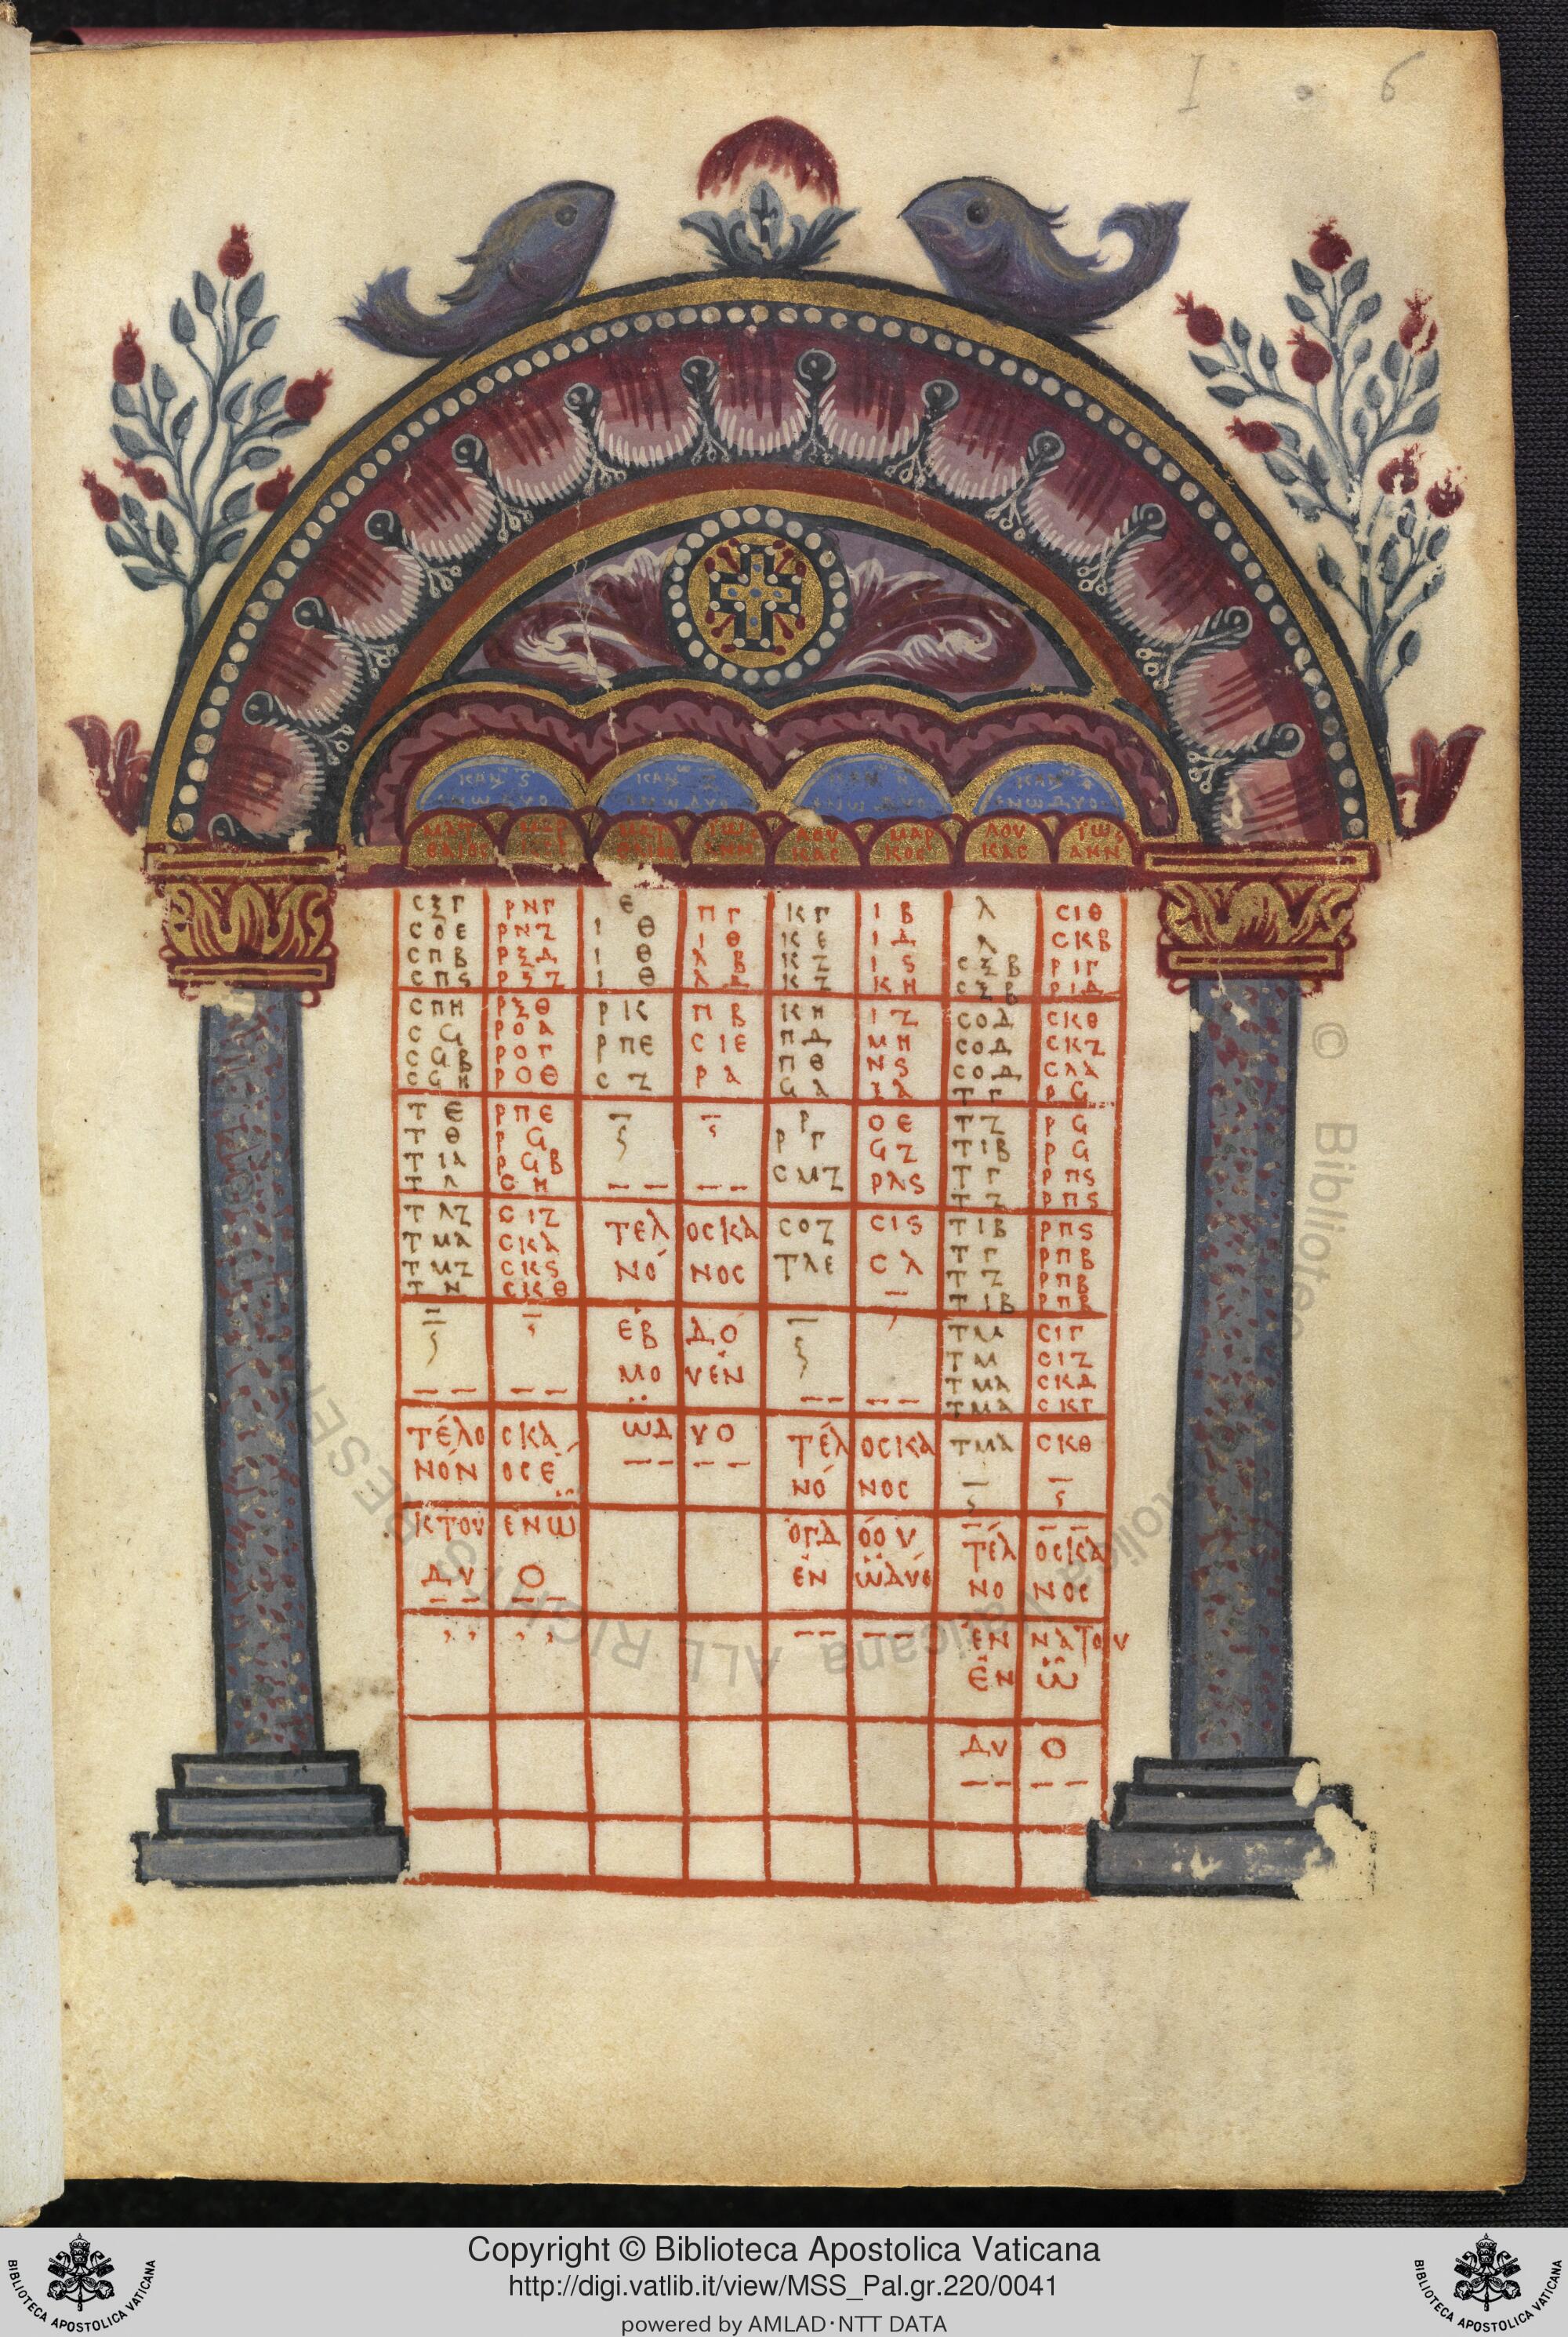 I 6
ΚΑΝ Ϛ ΚΑΝ ΚΑΝ Η ΚΑΝ
ΕΝ Ω ΔΥΟ ΕΝ Ω ΔΥΟ ΕΝ Ω ΔΥΟ ΕΝ Ω ΔΥΟ
ΜΑΤ ΜΑΡ ΜΑΤ ΙΩ ΛΟΥ ΜΑΡ ΛΟΥ ΙΩ
ΘΑΙΟΣ ΘΑΙΟΣ ΑΝΝ ΚΑΣ ΚΟΣ ΚΑΣ ΑΝΝ
ϹΞΓ ΡΝΓ Ε ΠΓ ΚΓ ΙΒ Λ ϹΙΘ
ϹΟΕ ΡΝΖ ΙΘ ΙΘ ΚΕ ΙΔ Λ ϹΚΒ
ϹΠΒ ΡΞΔ ΙΘ ΛΒ ΚΖ ΙϚ ϹΞΒ ΡΙΓ
ϹΠϚ ΡΞΖ ΙΘ ΛΔ ΚΖ ΚΗ ϹΞΒ ΡΙΔ
ϹΠΗ ΡΞΘ ΡΚ ΠΒ ΚΗ ΙΖ ϹΟΔ ϹΚΘ
ϹϤ ΡΟΑ ΡΠΕ ϹΙΕ ΠΔ ΜΗ ϹΟΔ ϹΚΖ
ϹϤΒ ΡΟΓ ϹΖ ΡΑ ΠΘ ΝϚ ϹΟΔ ϹΛΑ
ϹϤΗ ΡΟΘ ϤΑ ΞΑ ΤΓ ΡϤ
ΤΕ ΡΠΕ Ρ ΟΕ ΤΖ ΡϤ
ΤΘ ΡϤ ΡΓ ϤΖ ΤΙΒ ΡϤ
ΤΙΑ ΡϤΒ ϹΜΖ ΡΛϚ ΤΓ ΡΠϚ
ΤΛ ϹΗ ΤΖ ΡΠϚ
ΤΛΖ ϹΙΖ ΤΕΛ ΟϹ ΚΑ ϹΟΖ ϹΙϚ ΤΙΒ ΡΠϚ
ΤΜΑ ϹΚΑ ΝΟ ΝΟϹ ΤΛΕ ϹΛ ΤΓ ΡΠΒ
ΤΜΖ ϹΚϚ ΤΖ ΡΠΒ
ΤΝ ϹΚΘ ΤΙΒ ΡΠΒ
ΕΒ ΔΟ ΤΜΑ ϹΙΓ
ΜΟ Υ ΕΝ ΤΜ ϹΙΖ
ΤΜΑ ϹΚΔ
ΤΜΑ ϹΚΓ
ΤΕΛΟ Ϲ ΚΑ Ω Δ ΥΟ ΤΕΛ ΟϹ ΚΑ ΤΜΑ ϹΚΘ
ΝΟΝ ΟϹ Ε ΝΟ ΝΟϹ
ΚΤΟΥ ΕΝ Ω ΟΓΔ ΟΟΥ ΤΕΛ ΟϹ ΚΑ
ΔΥ Ο ΕΝ Ω ΔΥΟ ΝΟ ΝΟϹ
ΕΝ ΝΑΤΟΥ
ΕΝ Ω
ΔΥ Ο
© Biblioteca Apostolica Vaticana ALL RIGHTS RESERVED
Copyright © Biblioteca Apostolica Vaticana
http://digi.vatlib.it/view/MSS_Pal.gr.220/0041
powered by AMLAD·NTT DATA
BIBLIOTECA APOSTOLICA VATICANA
BIBLIOTECA APOSTOLICA VATICANA